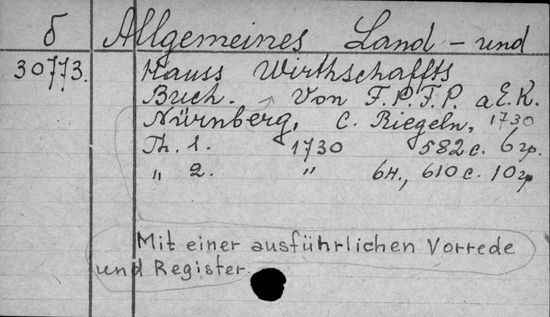 б Allgemeines Land - und
30773. Hauss Wirthschaffts
Buch. Von F.P.F.P. a E.K.
Nürnberg, C. Riegeln, 1730
Th. 1. 1730 582 c. 6 гр.
" 2. " 64., 610 c. 10 гр.
Mit einer ausführlichen Vorrede
und Register.